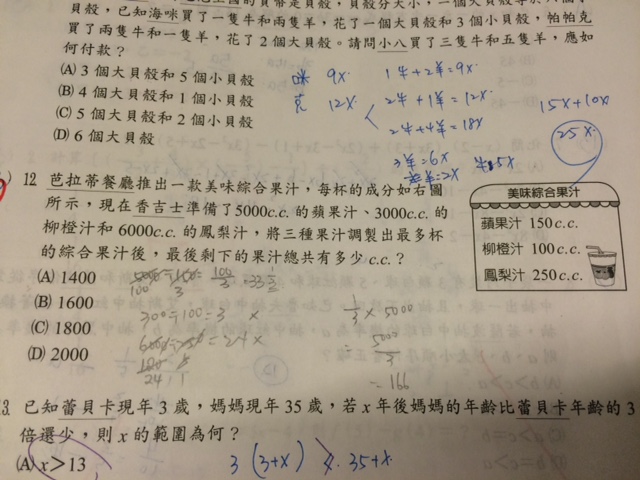 買了兩隻牛和一隻羊,花了 2 個大貝殼。請問小八買了三隻牛和五隻羊,應如
何付款?
(A) 3 個大貝殼和 5 個小貝殼
(B) 4 個大貝殼和 1 個小貝殼
(C) 5 個大貝殼和 2 個小貝殼
(D) 6 個大貝殼
咪 9x
克 12x
1牛+2羊=9x
2牛+1羊=12x
2牛+4羊=18x
3羊=6x
羊=2x 牛5x
15x+10x
25x
12 芭拉蒂餐廳推出一款美味綜合果汁,每杯的成分如右圖
所示,現在香吉士準備了5000c.c. 的蘋果汁、3000c.c. 的
柳橙汁和 6000c.c. 的鳳梨汁,將三種果汁調製出最多杯
的綜合果汁後,最後剩下的果汁總共有多少 c.c.?
(A) 1400
(B) 1600
(C) 1800
(D) 2000
美味綜合果汁
蘋果汁 150 c.c.
柳橙汁 100 c.c.
鳳梨汁 250 c.c.
300÷100=3 x
=24 x
1/3 x 5000
= 5000/3
= 166
13 已知蕾貝卡現年 3 歲,媽媽現年 35 歲,若 x 年後媽媽的年齡比蕾貝卡年齡的 3
倍還少,則 x 的範圍為何?
(A) x>13
3 (3+x) 35+x